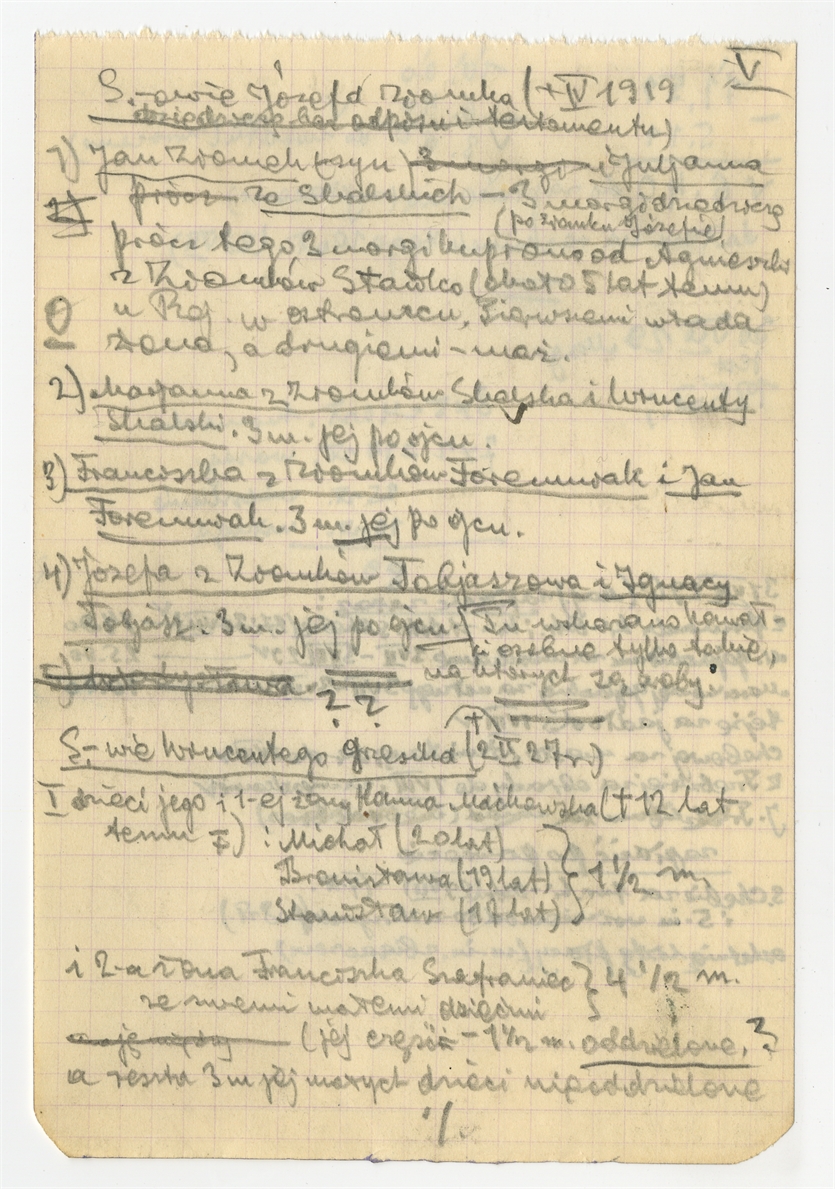 V
S-owie Józefa Ziomka (+ IV 1919
dziedziczą bez odpisu i testamentu)
1) Jan Ziomek (syn) 3 morgi i Juljanna
prócz ze Skalskich — 3 morgi dziedziczą
(po Ziomku Józefie)
prócz tego 3 morgi kupiono od Agnieszki
z Ziomków Stawko (około 5 lat temu)
u Rej. w Ostrowcu. Pierwszemi włada
żona, a drugiemi – mąż.
2) Marjanna z Ziomków Skalska i Wincenty
Skalski. 3 m. jej po ojcu.
3) Franciszka z Ziomków Foremniak i Jan
Foremniak. 3 m. jej po ojcu.
4) Józefa z Ziomków Tobjaszowa i Ignacy
Tobjasz. 3 m. jej po ojcu. Tu wskazano kawał-
ki osobno tylko takie,
na których są znaby
5) Władysława
? ?
S-wie Wincentego Grzesika (+ 2 II 27 r.)
I dzieci jego i 1-ej żony Hanna Maćkowska (+ 12 lat
temu) : Michał (20 lat)
Bronisława (19 lat) } 1 1/2 m.
Stanisław (17 lat)
i 2-a żona Franciszka Szafraniec } 4 1/2 m.
ze swemi małemi dziećmi
(jej część – 1 1/2 m. oddzielone, ?
a reszta 3 m jej małych dzieci nieoddzielone
./.